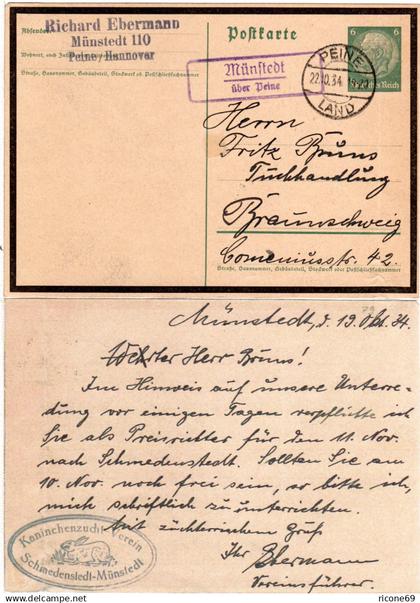 Richard Ebermann
Münstedt 110
Peine / Hannover
Absender:
Wohnort, auch Zustell-
Straße, Hausnummer, Gebäudeteil, Stockwerk od. Postschließfachnummer
Postkarte
Münstedt
über Peine
PEINE
22.10.34
LAND
6 6
Deutsches Reich
Herrn
Fritz Bruns
Tuchhandlung
Braunschweig
Comeniusstr. 42.
Straße, Hausnummer, Gebäudeteil, Stockwerk oder Postschließfachnummer
Münstedt, d. 19. Okt. 34.
Werter Herr Bruns!
Im Hinweis auf unsere Unterre-
dung vor einigen Tagen verpflichte ich
Sie als Preisrichter für den 11. Nov.
nach Schmedenstedt. Sollten Sie am
10. Nov. noch frei sein, so bitte ich,
mich schriftlich zu unterrichten.
Mit züchterischem Gruß
Ihr Ebermann
Vereinsführer.
Kaninchenzucht-Verein
Schmedenstedt-Münstedt
www.delcampe.net
ricone69